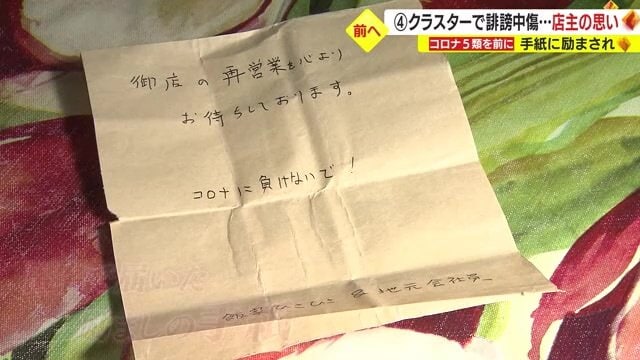 前へ
④クラスターで誹謗中傷…店主の思い
コロナ5類を前に 手紙に励まされ
御店の再営業を心より
お待ちしております。
コロナに負けないで!
地元会社員